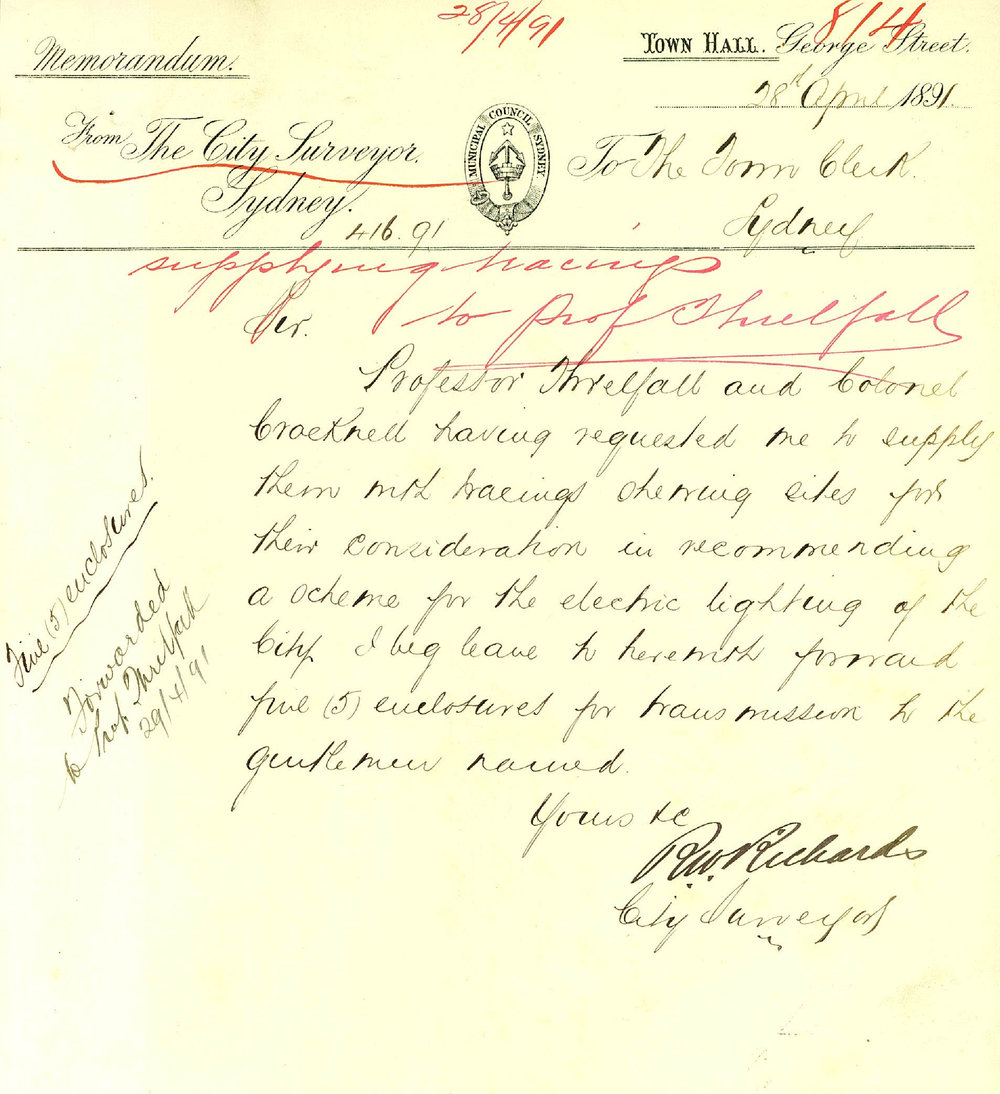 28/4/91
8/4
Memorandum.
TOWN HALL. George Street.
28th April 1891.
From The City Surveyor.
Sydney.
MUNICIPAL COUNCIL SYDNEY
To The Town Clerk.
Sydney
416.91
supplying tracings
to Prof Threlfall
Sir.
Professor Threlfall and Colonel
Cracknell having requested me to supply
them with tracings shewing sites for
their consideration in recommending
a scheme for the electric lighting of the
City I beg leave to herewith forward
five (5) enclosures for transmission to the
gentlemen named.
Yours &c
R.W. Richards
City Surveyor
Five (5) enclosures.
Forwarded
to Prof. Threlfall
29/4/91